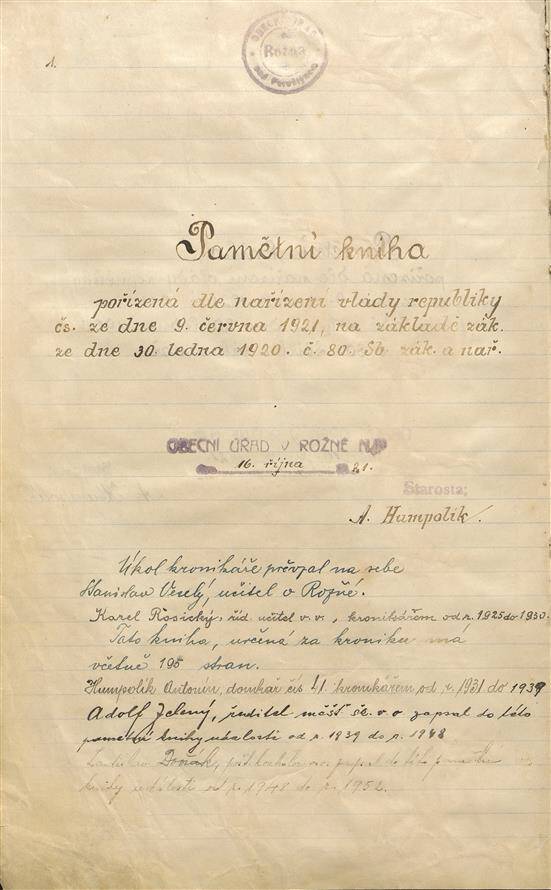 1.
OBECNÍ ÚŘAD
Rožná
nad Pernštýnem
Pamětní kniha
pořízená dle nařízení vlády republiky
čs. ze dne 9. června 1921, na základě zák.
ze dne 30. ledna 1920. č. 80. Sb. zák. a nař.
OBECNÍ ÚŘAD V ROŽNÉ N/P
16. října 21.
Starosta:
A. Humpolík.
Úkol kronikáře převzal na sebe
Stanislav Veselý, učitel v Rožné.
Karel Rosický, říd. učitel v. v., kronikářem od r. 1925 do 1930.
Tato kniha, určená za kroniku má
včetně 195 stran.
Humpolík Antonín, domkář čís 41 kronikářem od r. 1931 do 1939
Adolf Zelený, ředitel měšť. šk. v. v zapsal do této
pamětní knihy události od r. 1939 do r. 1948
Ladislav Dvořák, zapsal do této pamětní
knihy události od r. 1948 do r. 1952.